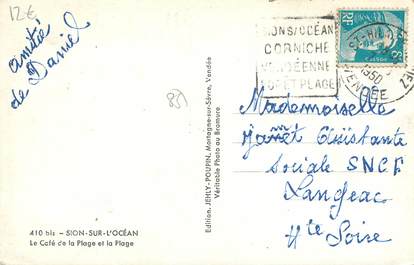 12€
amitié
de Daniel
SION S/OCÉAN
CORNICHE
VENDÉENNE
FORÊT PLAGE
ST-HILAIRE
1950
VENDÉE
RF
851
Mademoiselle
Janet Assistante
Sociale SNCF
Langeac
Hte Loire
Edition JEHLY-POUPIN, Mortagne-sur-Sèvre, Vendée
Véritable Photo au Bromure
410 bis - SION-SUR-L'OCÉAN
Le Café de la Plage et la Plage